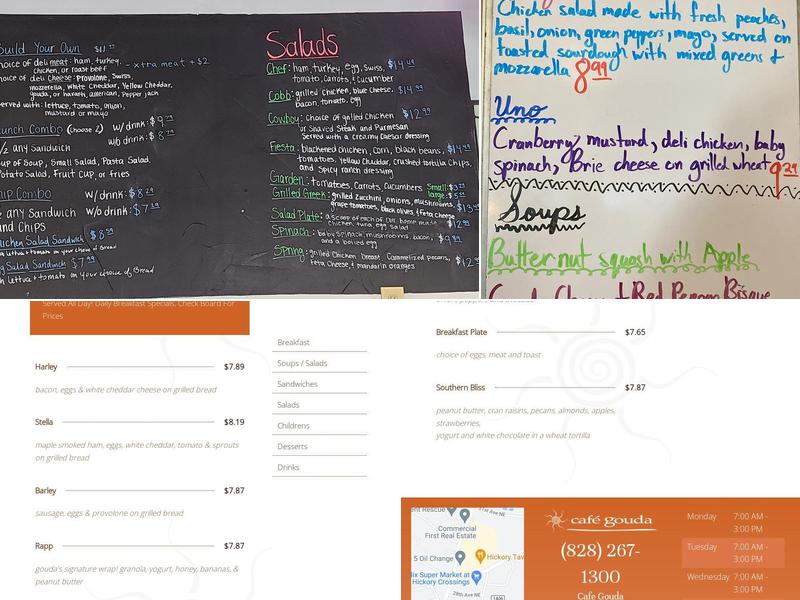 Build Your Own $11.99
choice of deli meat: ham, turkey, - xtra meat +$2
chicken, or roast beef
choice of deli cheese: Provolone, Swiss,
mozzerella, White Cheddar, Yellow Cheddar,
gouda, or havarti, american, Pepper jack
served with: lettuce, tomato, onion,
mustard or mayo
Lunch Combo (choose 2) w/drink: $9
1/2 any Sandwich w/o drink: $8
Cup of Soup, Small Salad, Pasta Salad,
Potato Salad, Fruit Cup, or fries
Chip Combo w/drink: $8
any Sandwich w/o drink: $7
and Chips
Chicken Salad Sandwich $8
lettuce & tomato on your choice of Bread
Egg Salad Sandwich $7
lettuce & tomato on your choice of Bread
Salads
Chef: ham, turkey, egg, Swiss, $14.49
tomato, Carrots, & Cucumber
Cobb: grilled chicken, blue cheese, $14.99
bacon, tomato, egg
Cowboy: choice of grilled chicken $12.99
or Shaved Steak and Parmesan
Served with a creamy Caesar dressing
Fiesta: blackened chicken, corn, black beans, $14
tomatoes, Yellow Cheddar, crushed tortilla Chips,
and Spicy ranch dressing
Garden: tomatoes, Carrots, Cucumbers Small: $3
large: $5
Grilled Greek: grilled zucchini, Onions, mushrooms, $13
grape tomatoes, black olives, & feta Cheese
Salad Plate: a scoop of each of our home made
chicken, tuna, egg salad
Spinach: baby Spinach, mushrooms, bacon, $9
and a boiled egg
Spring: grilled Chicken breast, Carmelized pecans, $12
feta Cheese, & mandarin oranges
Chicken salad made with fresh peaches,
basil, onion, green peppers, mayo, served on
toasted sourdough with mixed greens &
mozzarella 8.99
Uno
Cranberry mustard, deli chicken, baby
spinach, Brie cheese on grilled wheat 9.29
Soups
Butternut squash with Apple
Red Pepper Bisque
Served All Day! Daily Breakfast Specials, Check Board For
Prices
Harley $7.89
bacon, eggs & white cheddar cheese on grilled bread
Stella $8.19
maple smoked ham, eggs, white cheddar, tomato & sprouts
on grilled bread
Barley $7.87
sausage, eggs & provolone on grilled bread
Rapp $7.87
gouda's signature wrap! granola, yogurt, honey, bananas, &
peanut butter
Breakfast
Soups / Salads
Sandwiches
Salads
Childrens
Desserts
Drinks
Breakfast Plate $7.65
choice of eggs, meat and toast
Southern Bliss $7.87
peanut butter, cran raisins, pecans, almonds, apples,
strawberries,
yogurt and white chocolate in a wheat tortilla
ent Rescue
21st Ave NE
Commercial
First Real Estate
5 Oil Change
Hickory Tav
lix Super Market at
Hickory Crossings
28th Ave NE
1406
café gouda
(828) 267-
1300
Cafe Gouda
Monday 7:00 AM -
3:00 PM
Tuesday 7:00 AM -
3:00 PM
Wednesday 7:00 AM -
3:00 PM